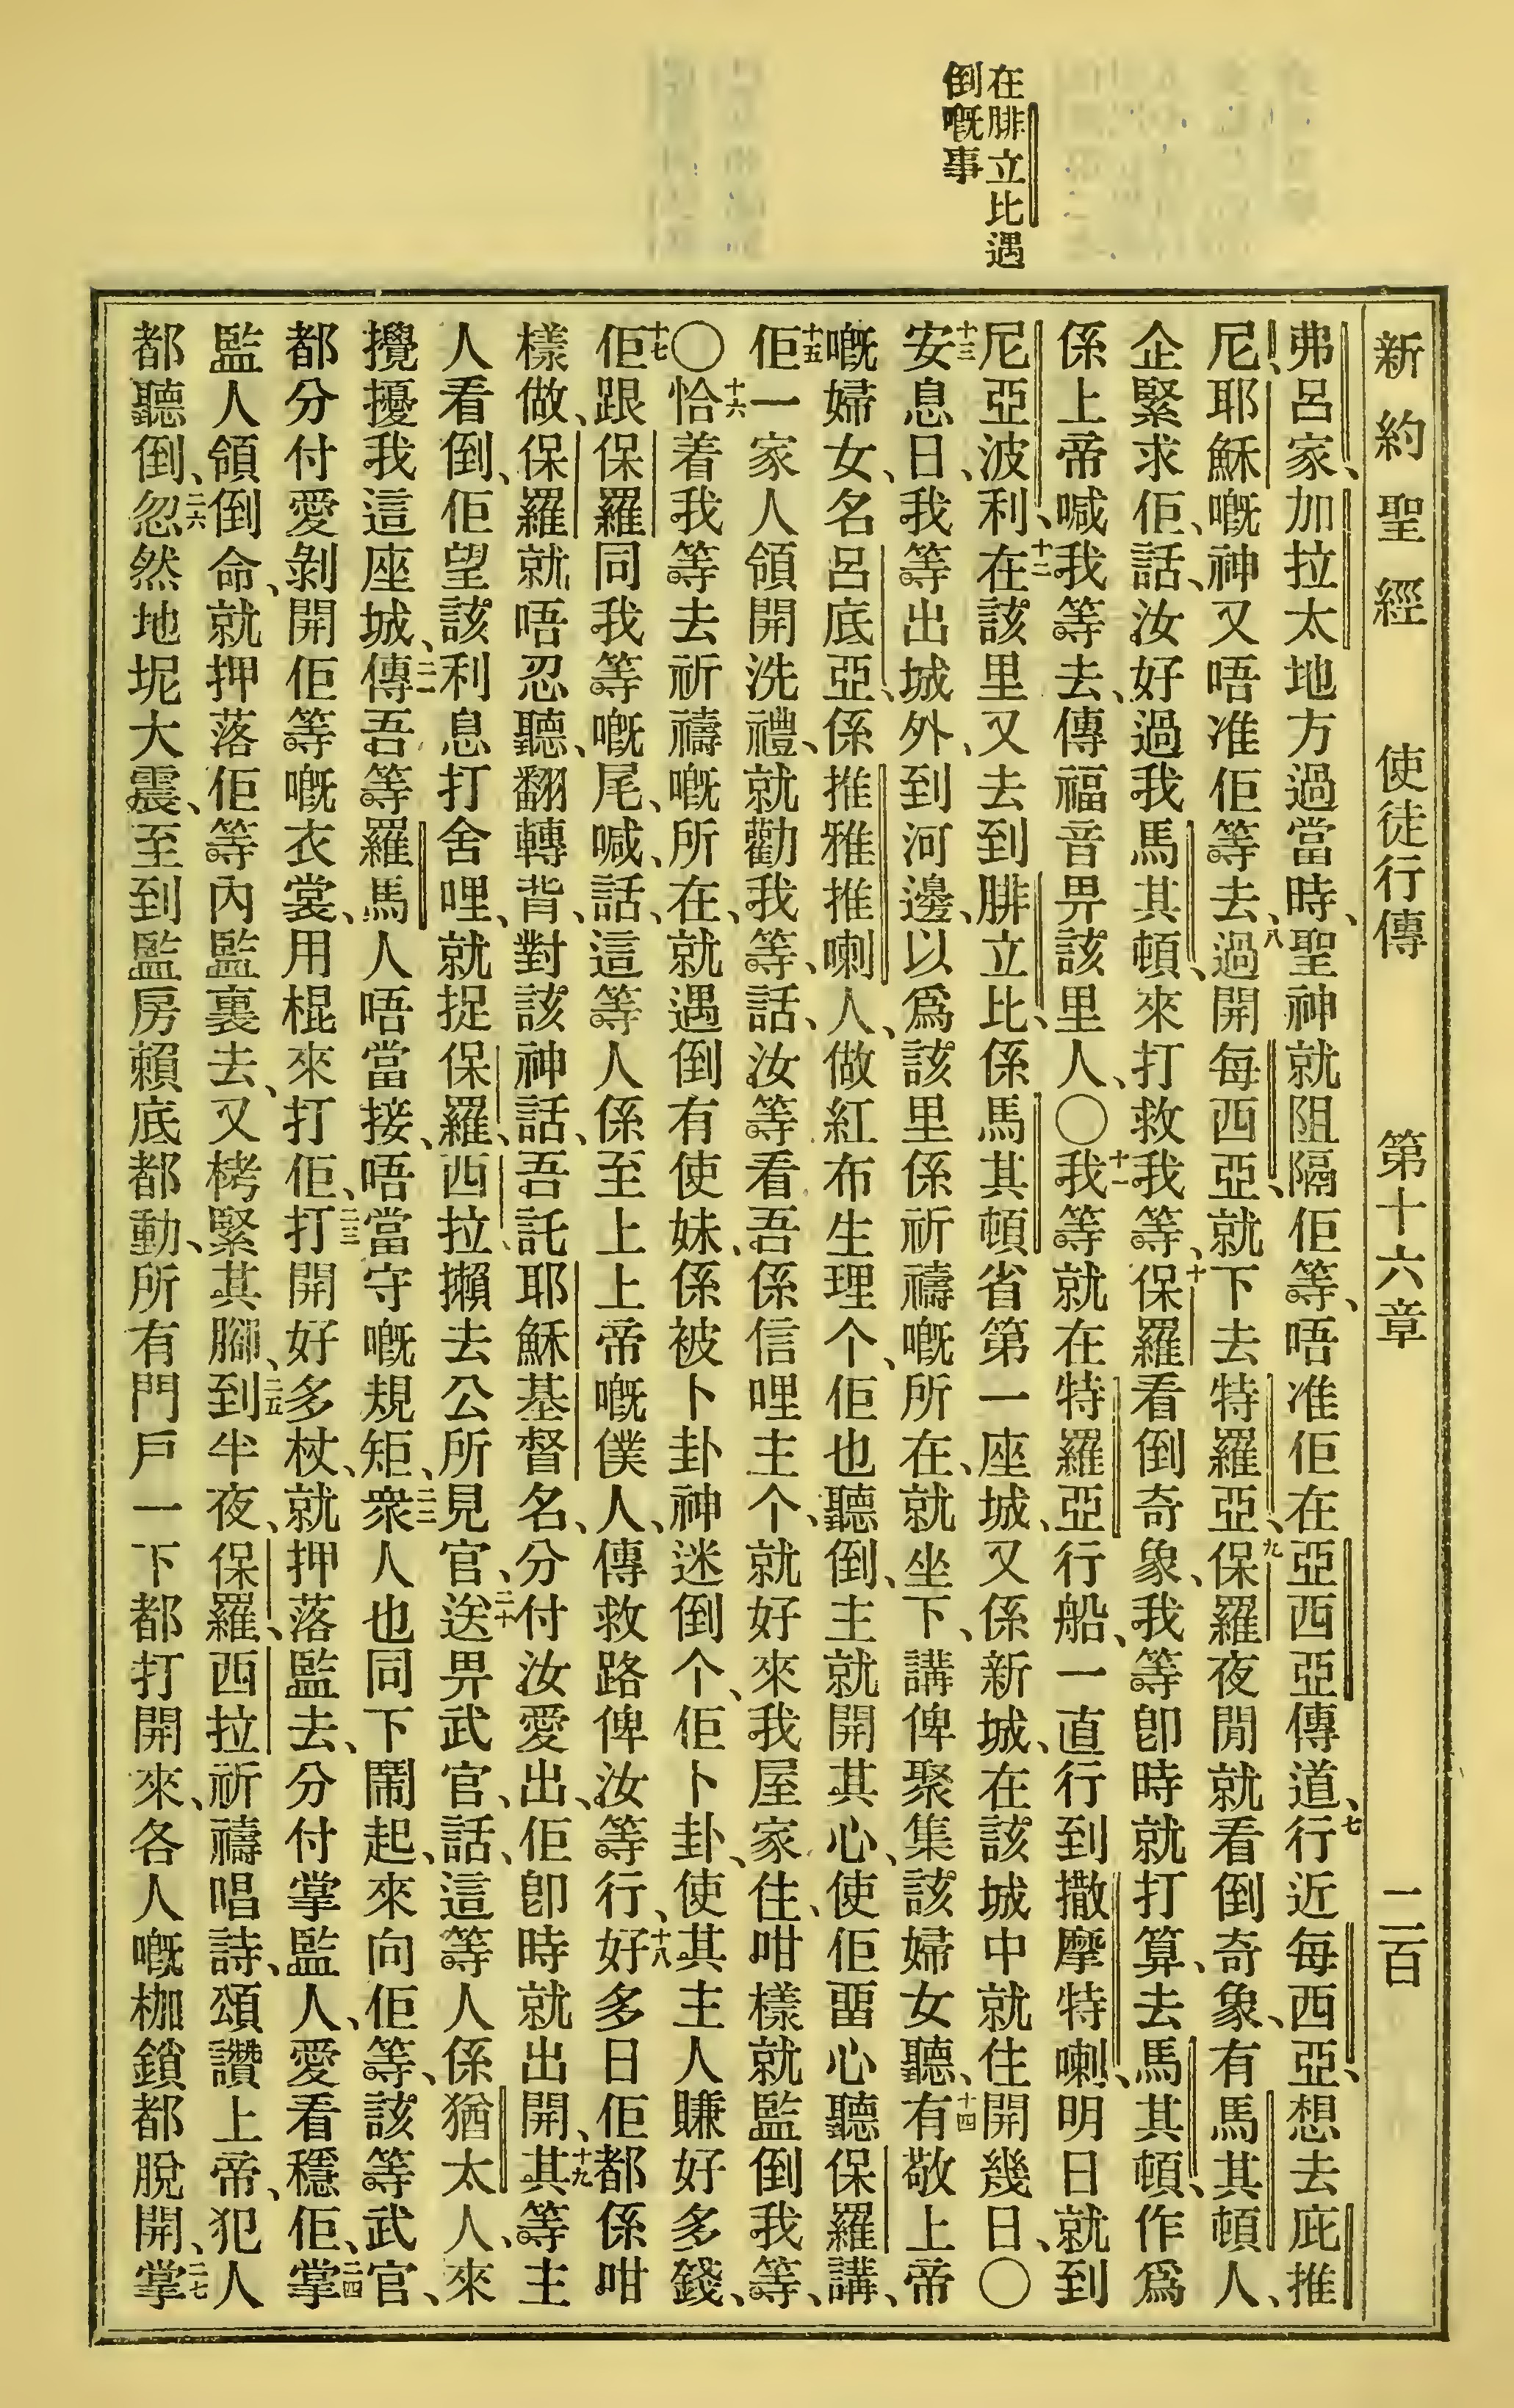 在腓立比遇
倒嘅事
新約聖經 使徒行傳 第十六章 二百
弗呂家、加拉太地方過當時、聖神就阻隔佢等、唔准佢在亞西亞傳道、七行近每西亞、想去庇推
尼、耶穌嘅神又唔准佢等去、八過開每西亞、就下去特羅亞、九保羅夜間就看倒奇象、有馬其頓人、
企緊求佢、話、汝好過我馬其頓、來打救我等、十保羅看倒奇象、我等卽時就打算、去馬其頓、作爲
係上帝喊我等去、傳福音畀該里人、〇十一我等就在特羅亞行船、一直行到撒摩特喇、明日就到
尼亞波利、十二在該里又去到腓立比、係馬其頓省第一座城、又係新城、在該城中就住開幾日、〇
十三安息日、我等出城外、到河邊、以爲該里係祈禱嘅所在、就坐下、講俾聚集該婦女聽、十四有敬上帝
嘅婦女、名呂底亞、係推雅推喇人、做紅布生理个、佢也聽倒、主就開其心、使佢畱心聽保羅講、
十五佢一家人領開洗禮、就勸我等、話、汝等看吾係信哩主个、就好來我屋家住、咁樣就監倒我等、
〇十六恰着我等去祈禱嘅所在、就遇倒有使妹、係被卜卦神迷倒个、佢卜卦、使其主人賺好多錢、
十七佢跟保羅同我等嘅尾、喊、話、這等人係至上上帝嘅僕人、傳救路俾汝等行、十八好多日佢都係咁
樣做、保羅就唔忍聽、翻轉背、對該神話、吾託耶穌基督名、分付汝愛出、佢卽時就出開、十九其等主
人看倒、佢望該利息打舍哩、就捉保羅、西拉、攋去公所見官、二十送畀武官、話、這等人係猶太人、來
攪擾我這座城、二一傳吾等羅馬人唔當接、唔當守嘅規矩、二二衆人也同下鬧起、來向佢等、該等武官、
都分付愛剝開佢等嘅衣裳、用棍來打佢、二三打開好多杖、就押落監去、分付掌監人、愛看穩佢、二四掌
監人領倒命、就押落佢等內監裏去、又栲緊其腳、二五到半夜、保羅、西拉祈禱唱詩、頌讚上帝、犯人
都聽倒、二六忽然地坭大震、至到監房賴底都動、所有門戶一下都打開來、各人嘅枷鎖都脫開、二七掌